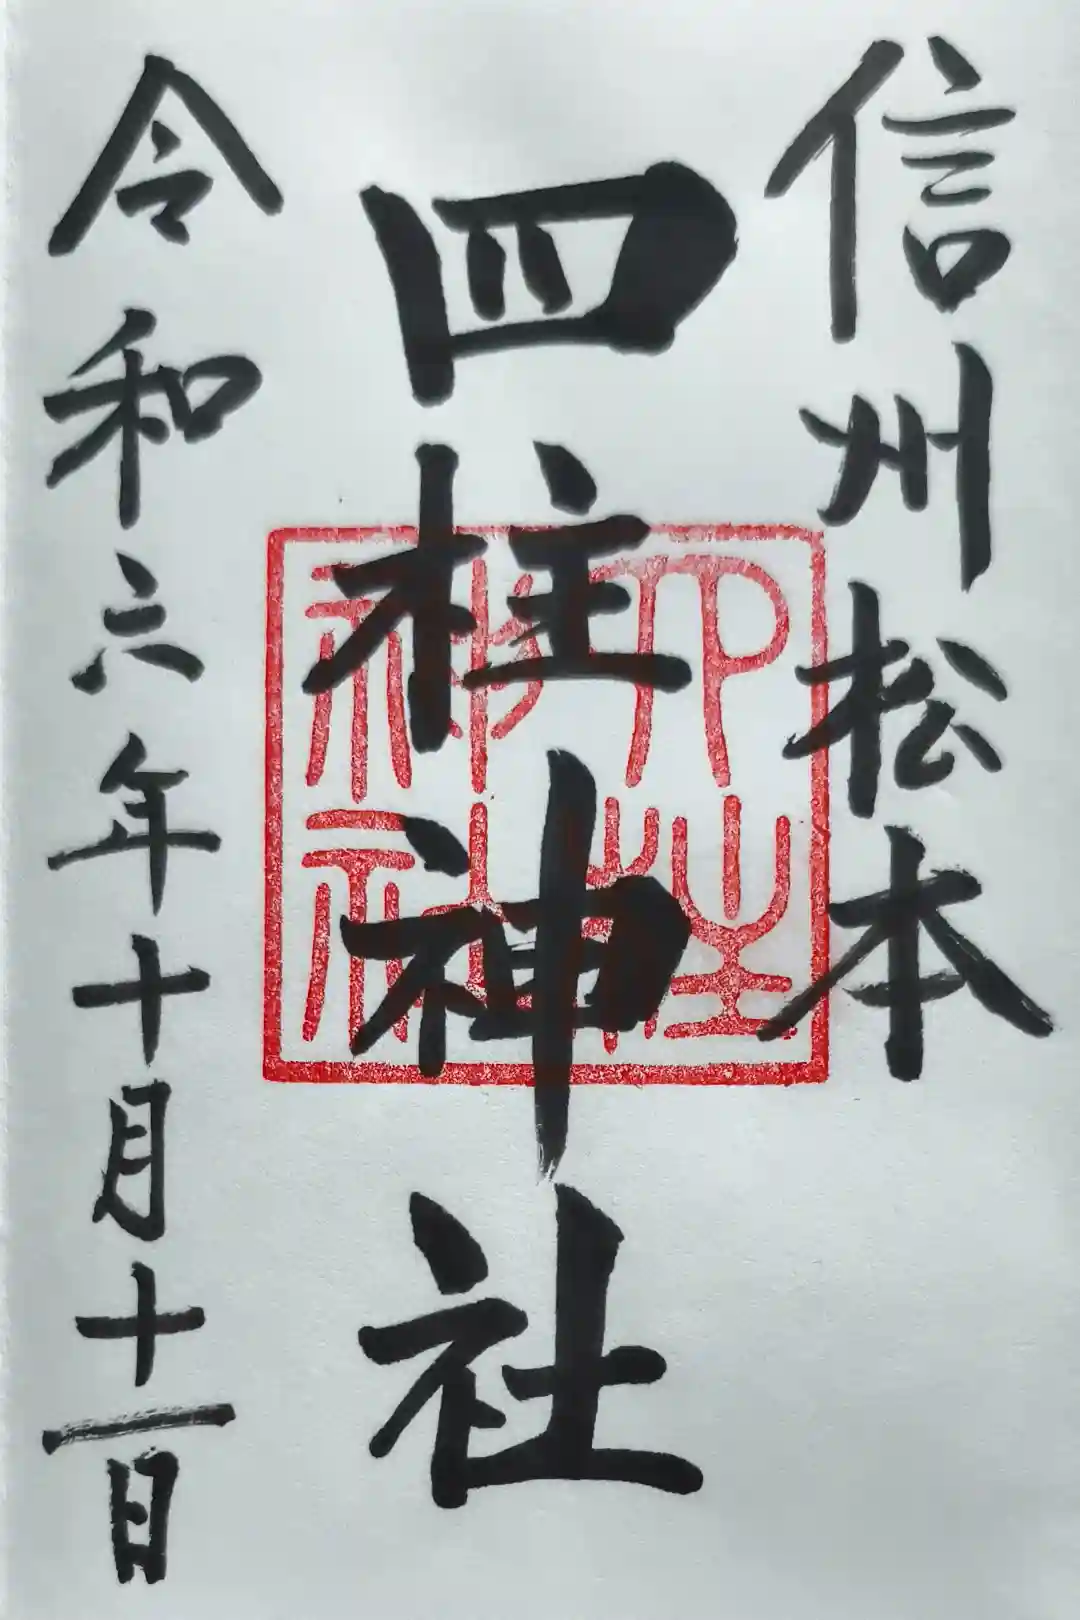 信州松本
四柱神社
四柱
神社
令和六年十月十一日